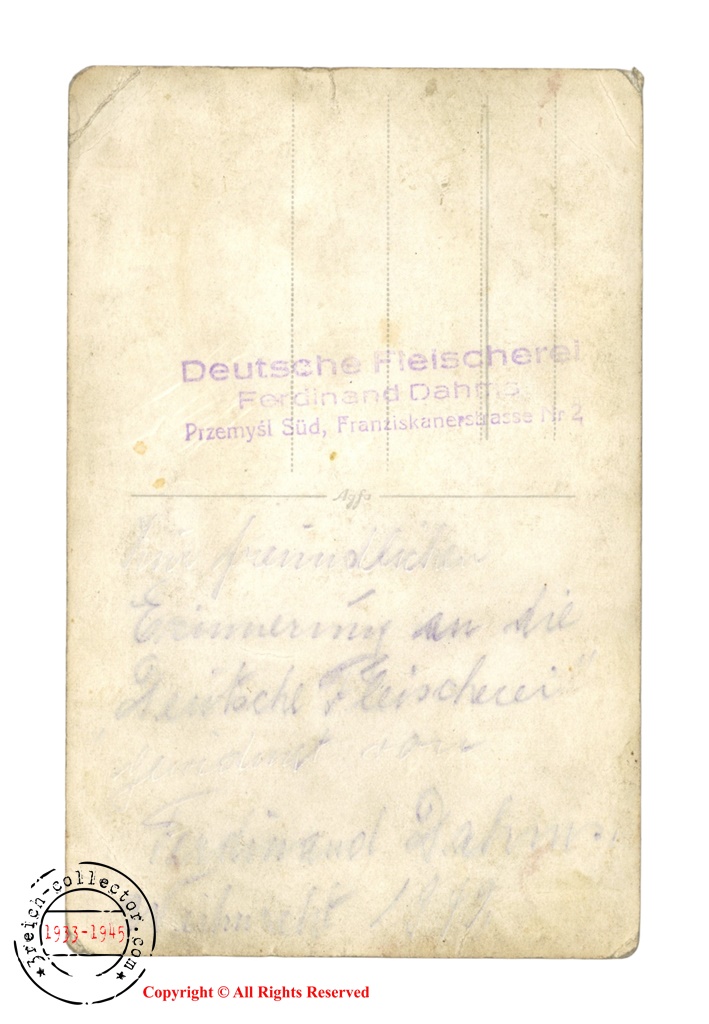 Deutsche Fleischerei
Ferdinand Dahms
Przemyśl Süd, Franziskanerstrasse Nr 2
Agfa
Zur freundlichen
Erinnerung an die
"Deutsche Fleischerei"
gewidmet von
Ferdinand Dahms.
3reich-collector.com
1933-1945
Copyright © All Rights Reserved